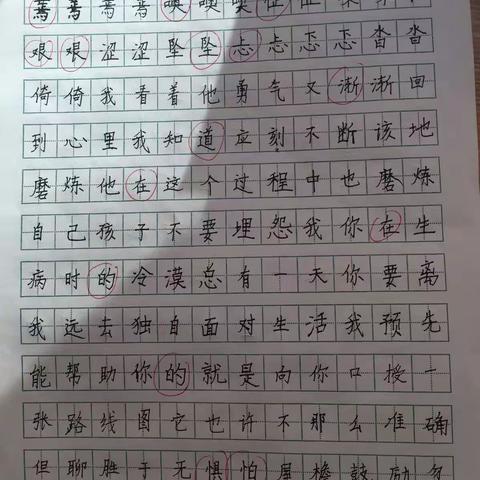 艰艰涩涩坠坠忐忐忑忑沓沓
倚倚我看着他勇气又渐渐回
到心里我知道应刻不断该地
磨炼他在这个过程中也磨炼
自己孩子不要埋怨我你在生
病时的冷漠总有一天你要离
我远去独自面对生活我预先
能帮助你的就是向你口授一
张路线图它也许不那么准确
但聊胜于无惧怕屋檐鼓励